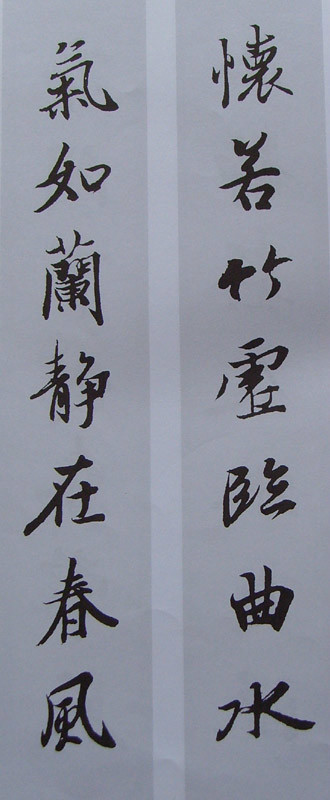 懷若竹虛臨曲水
氣如蘭静在春風